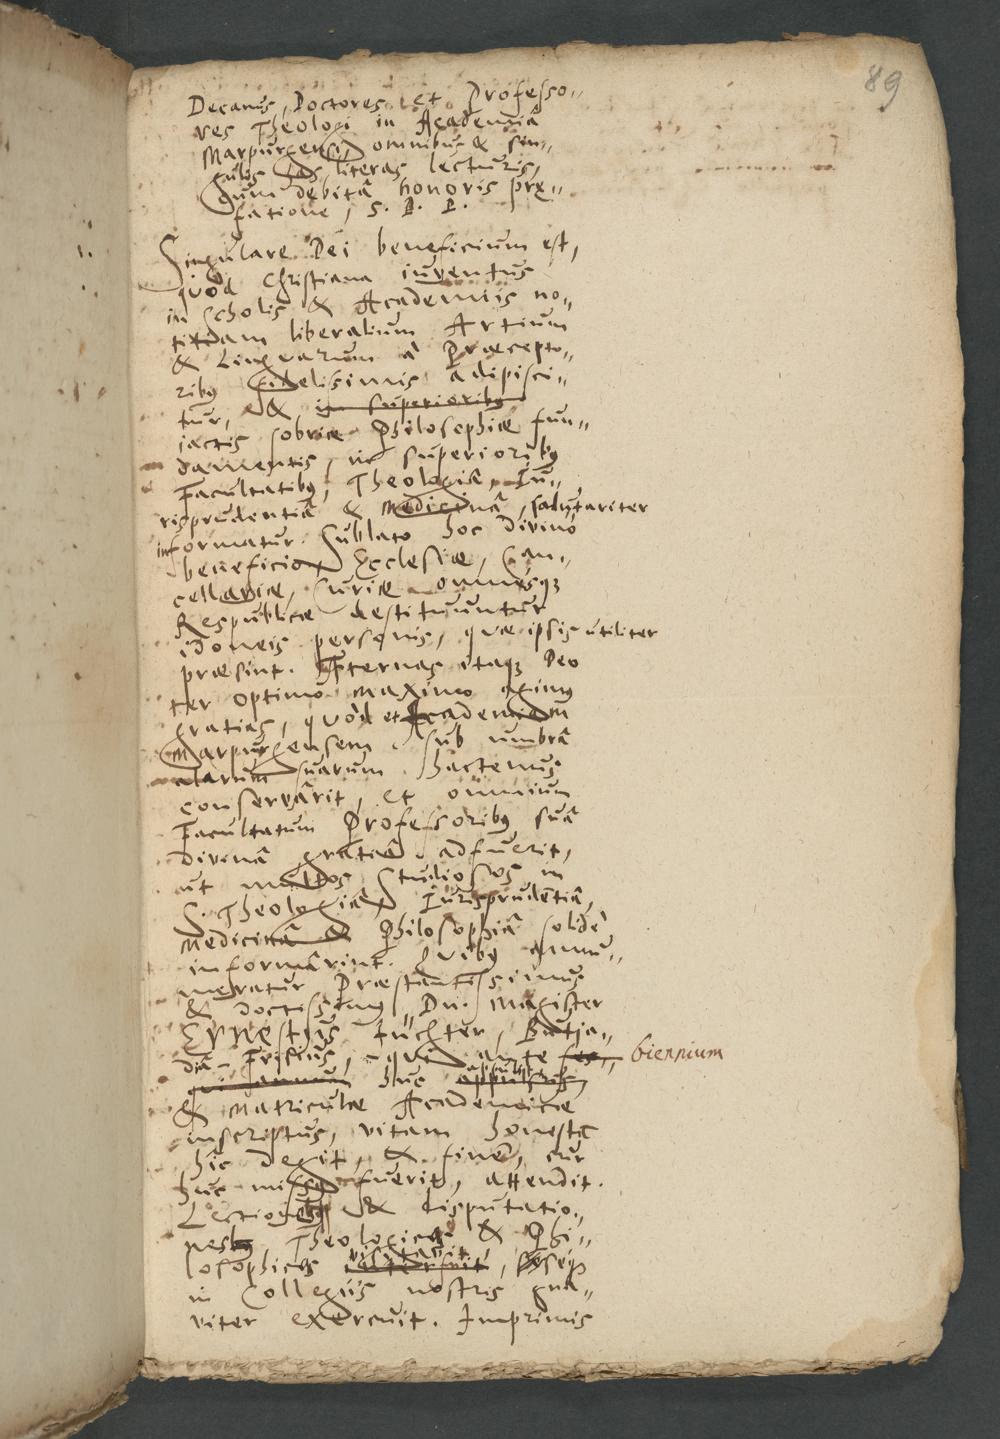 89
Decanus, Doctores et Professo„
res Theologi in Academiâ
Marpurgensi, omnibus & sin„
gulis has literas lecturis,
Cum debitâ honoris præ„
fatione, S. P. P.
Singulare Dei beneficium est,
quòd Christiana iuventus
in Scholis & Academiis no„
titiam liberalium Artium
& Linguarum à Præcepto„
ribus fidelisimis adipisci„
tur, & in superioribus
iactis sobriæ Philosophiæ fun„
damentis, in superioribus
Facultatibus, Theologiâ, Iu„
risprudentiâ & Medicinâ, salutariter
informatur. Sublato hoc divino
beneficio, Ecclesiæ, Can„
cellariæ, Curiæ omnesque
Respublicæ destituuntur
idoneis personis, quæ ipsis utiliter
præsint. Æternas itaque Deo
ter optimo maximo agimus
gratias, quòd et Academiam
Marpurgensem sub umbrâ
alarum suarum hactenus
conservârit, et omnium
Facultatum Professoribus suâ
divinâ gratiâ adfuerit,
ut multos Studiosos in
S. Theologiâ, Iurisprudentiâ,
Medicinâ & Philosophiâ solidè
informârint. Quibus annu„
meratur Præstantissimus
& doctissimus Dn. Magister
Luchter, Butja„
diâ-Frisius, qui ante biennium
huc
& matriculæ Academicæ
inscriptus, vitam honestè
hîc degit, & finem, cur
huc missus fuerit, attendit.
Lectiones & disputatio„
nes Theologicas & Phi„
losophicas, seque
in Collegiis nostris gna„
viter exercuit. Imprimis